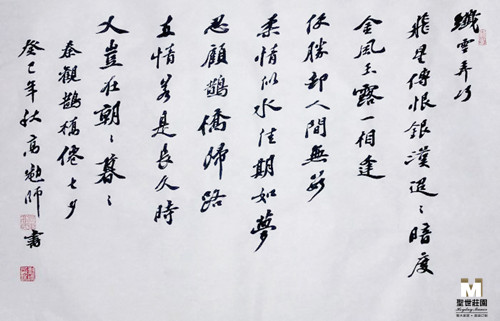 纖雲弄巧
飛星傳恨銀漢迢〻暗度
金風玉露一相逢
便勝却人間無數
柔情似水佳期如夢
忍顧鵲橋歸路
兩情若是長久時
又豈在朝〻暮〻
秦觀鵲橋僊七夕
癸巳年秋高師書
聖世莊園